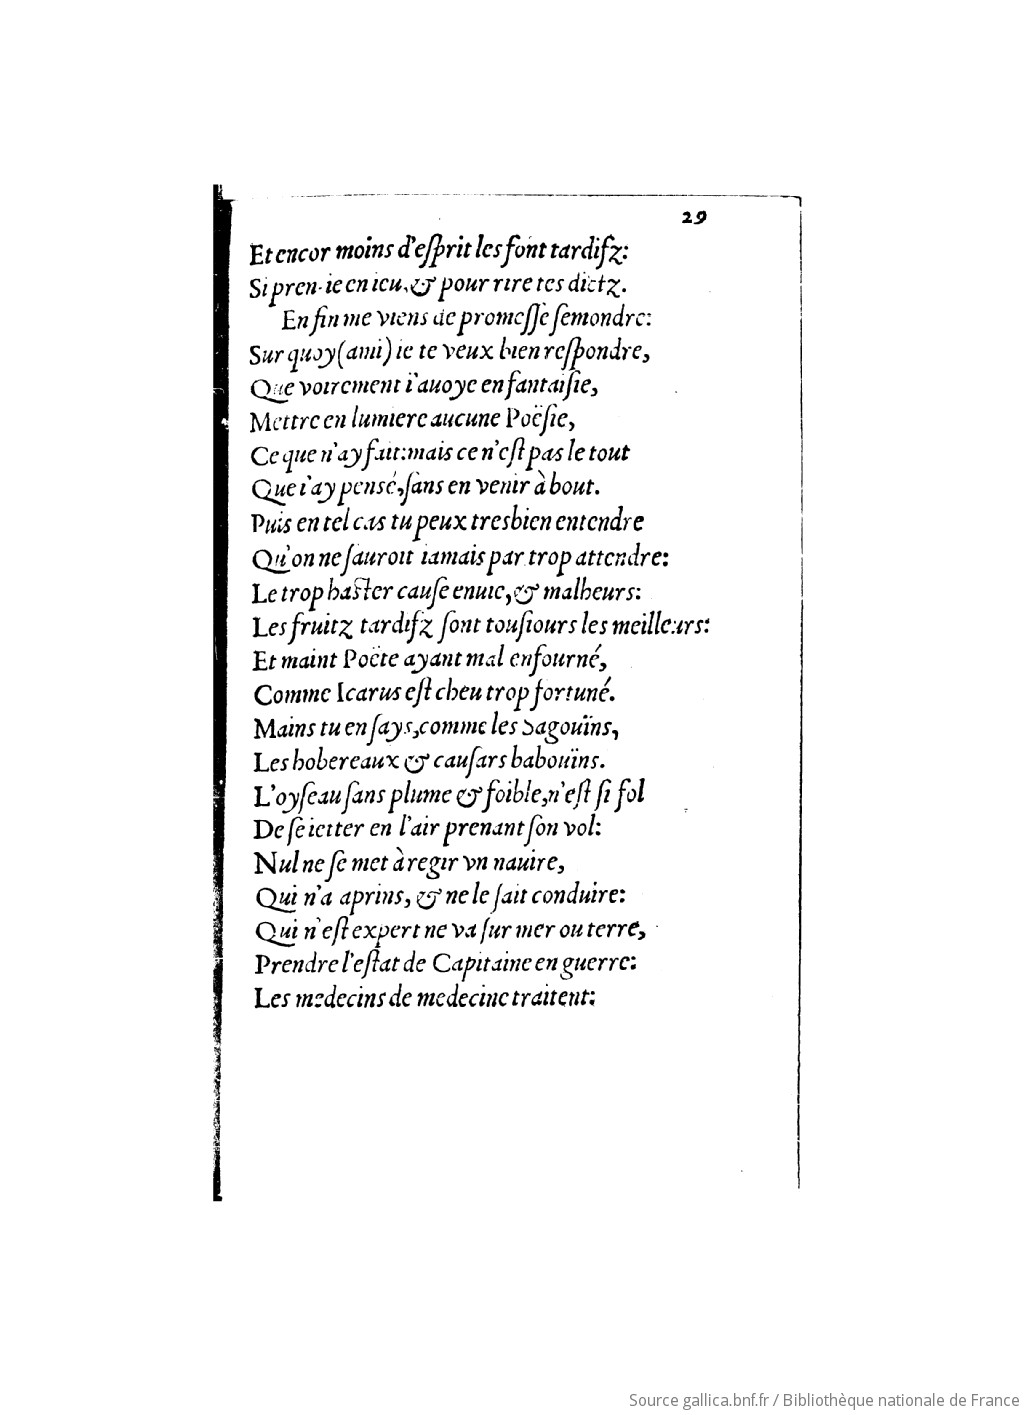 29
Et encor moins d'eſprit les font tardifz:
Si pren-ie en ieu, & pour rire tes dictz.
En fin me viens de promeſſe ſemondre:
Sur quoy (ami) ie te veux bien reſpondre,
Que voirement i'auoye en fantaiſie,
Mettre en lumiere aucune Poëſie,
Ce que n'ay fait: mais ce n'eſt pas le tout
Que i'ay pensé, ſans en venir à bout.
Puis en tel cas tu peux tresbien entendre
Qu'on ne ſauroit iamais par trop attendre:
Le trop haſter cauſe enuie, & malheurs:
Les fruitz tardifz ſont touſiours les meilleurs:
Et maint Poëte ayant mal enfourné,
Comme Icarus eſt cheu trop fortuné.
Mains tu en ſays, comme les Sagouïns,
Les hobereaux & cauſars babouïns.
L'oyſeau ſans plume & foible, n'eſt ſi fol
De ſe ietter en l'air prenant ſon vol:
Nul ne ſe met à regir vn nauire,
Qui n'a aprins, & ne le ſait conduire:
Qui n'eſt expert ne va ſur mer ou terre,
Prendre l'eſtat de Capitaine en guerre:
Les medecins de medecine traitent:
Source gallica.bnf.fr / Bibliothèque nationale de France